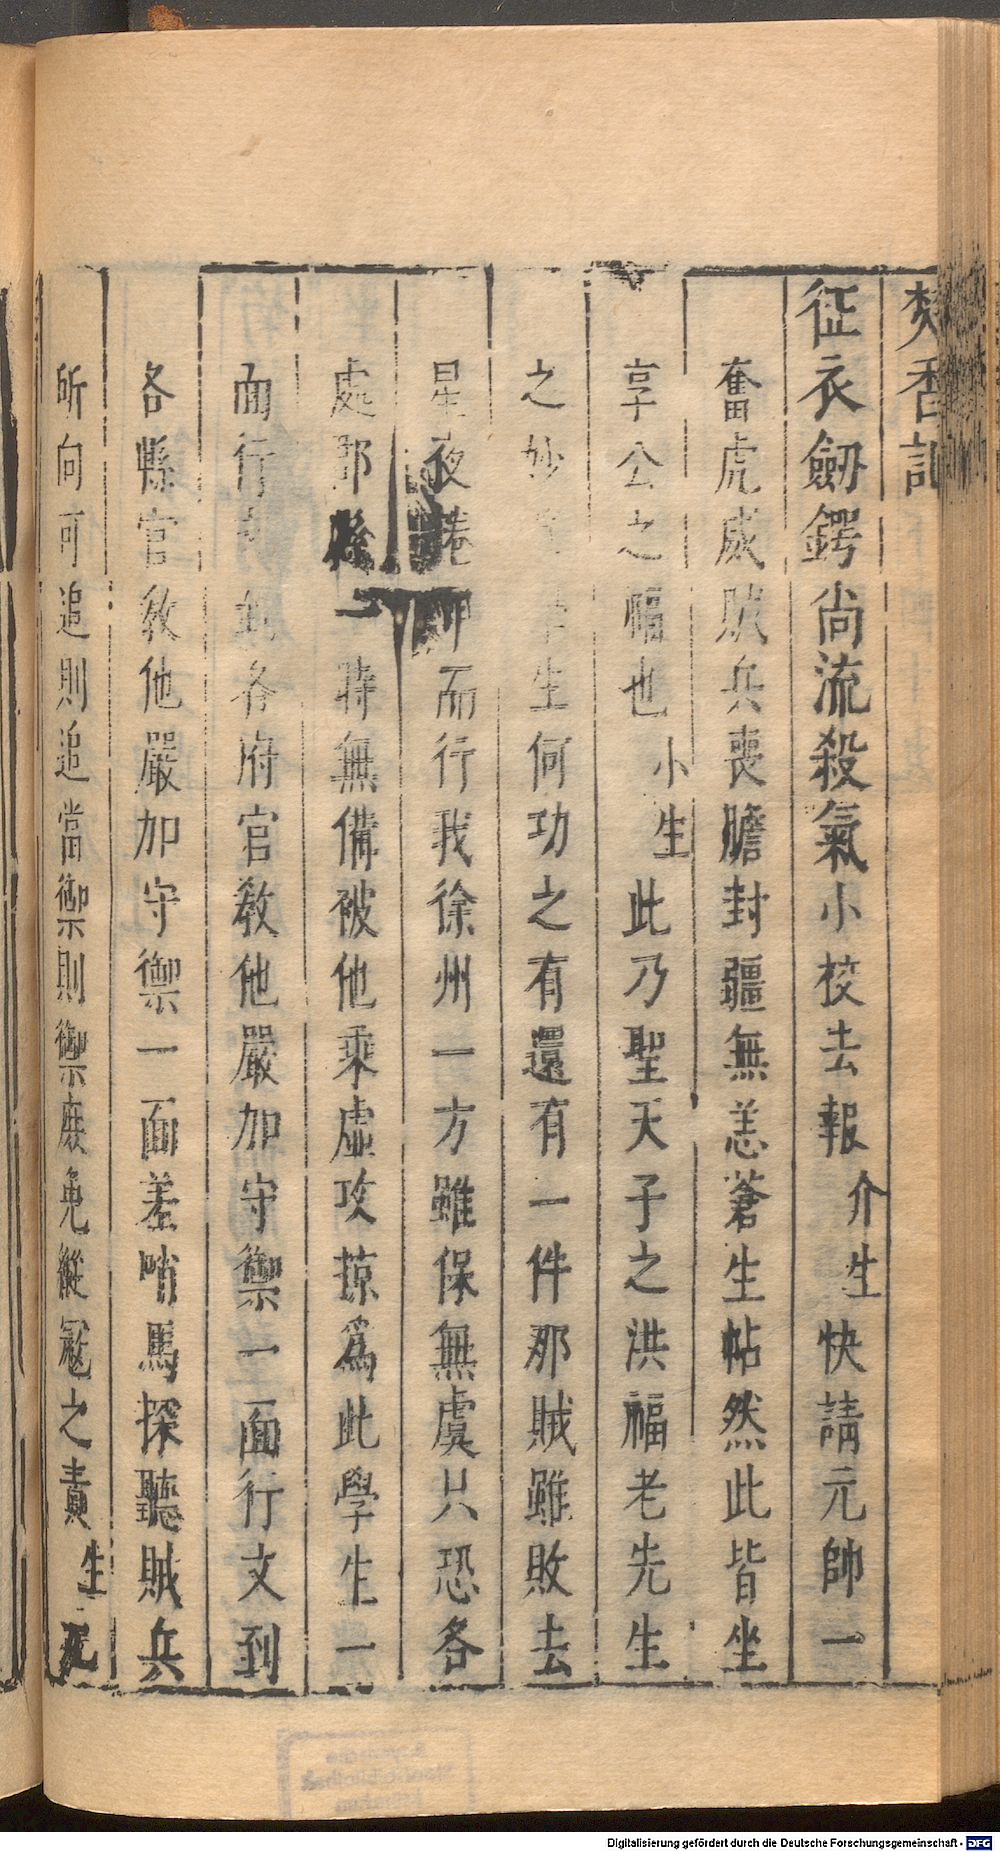 焚香記
征衣劔鍔尚流殺氣小校去報介生快請元帥一
奮虎威賊兵喪膽封疆無恙蒼生帖然此皆坐
享公之福也小生此乃聖天子之洪福老先生
之妙生何功之有還有一件那賊雖敗去
星夜捲而行我徐州一方雖保無虞只恐各
處郡縣一時無備被他乘虛攻掠爲此學生一
面行各府官敎他嚴加守禦一面行文到
各縣官敎他嚴加守禦一面差哨馬探聽賊兵
所向可追則追當禦則禦庶免縱寇之責生元
Digitalisierung gefördert durch die Deutsche Forschungsgemeinschaft - DFG